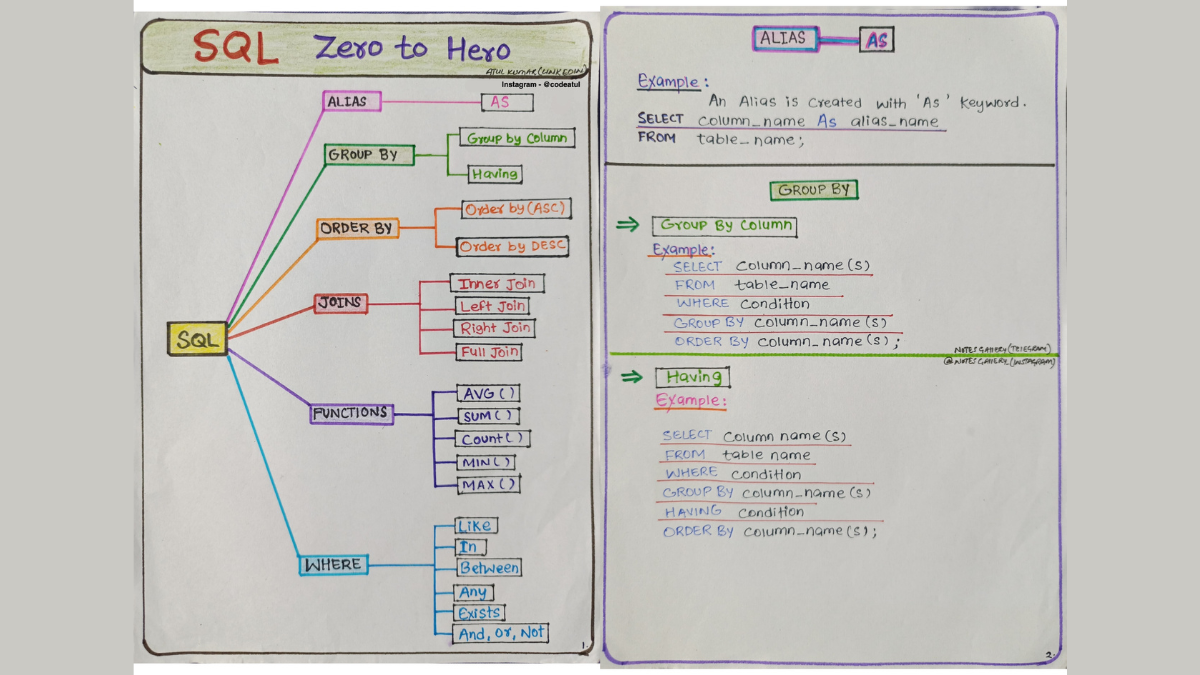 SQL Zero to Hero
ATUL KUMAR (LINKEDIN)
Instagram - @codeatul
ALIAS
AS
GROUP BY
Group by Column
Having
ORDER BY
Order by (ASC)
Order by DESC
JOINS
Inner Join
Left Join
Right Join
Full Join
SQL
FUNCTIONS
AVG ( )
SUM ( )
Count ( )
MIN ( )
MAX ( )
WHERE
Like
In
Between
Any
Exists
And, Or, Not
1.
ALIAS
AS
Example :
An Alias is Created with 'As' Keyword.
SELECT column_name As alias_name
FROM table_name;
GROUP BY
⇒ Group By Column
Example:
SELECT Column_name (s)
FROM table_name
WHERE Condition
GROUP BY Column_name (s)
ORDER BY Column_name (s) ;
NOTES GALLERY (TELEGRAM)
@ NOTES GALLERY (INSTAGRAM)
⇒ Having
Example:
SELECT Column name (s)
FROM table name
WHERE condition
GROUP BY column_name (s)
HAVING Condition
ORDER BY Column_name (s) ;
2.